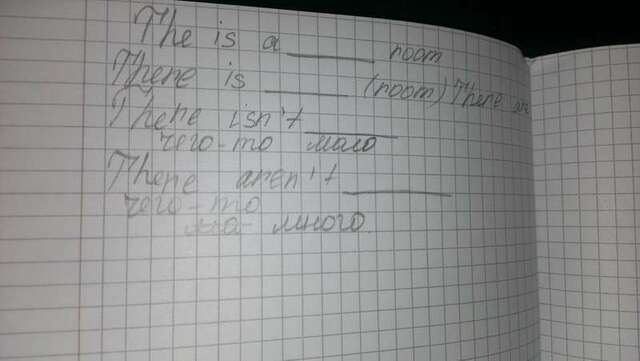 The is a ______ room
There is ______ (room) There are
There isn't ______
чего-то мало
There aren't ______
чего-то
много